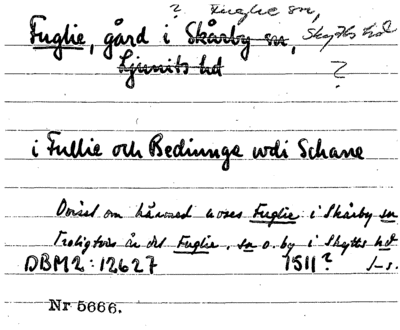 ? Fuglie sn,
Fuglie, gård i Skårby sn, Skytts hd
Ljunits hd ?
i Fullie och Bedinnge wdi Schane
Ovisst om härmed avses Fuglie i Skårby sn
Troligtvis är det Fuglie, sn o. by i Skytts hd
DBM2:12627 1511? /-s.
Nr 5666.